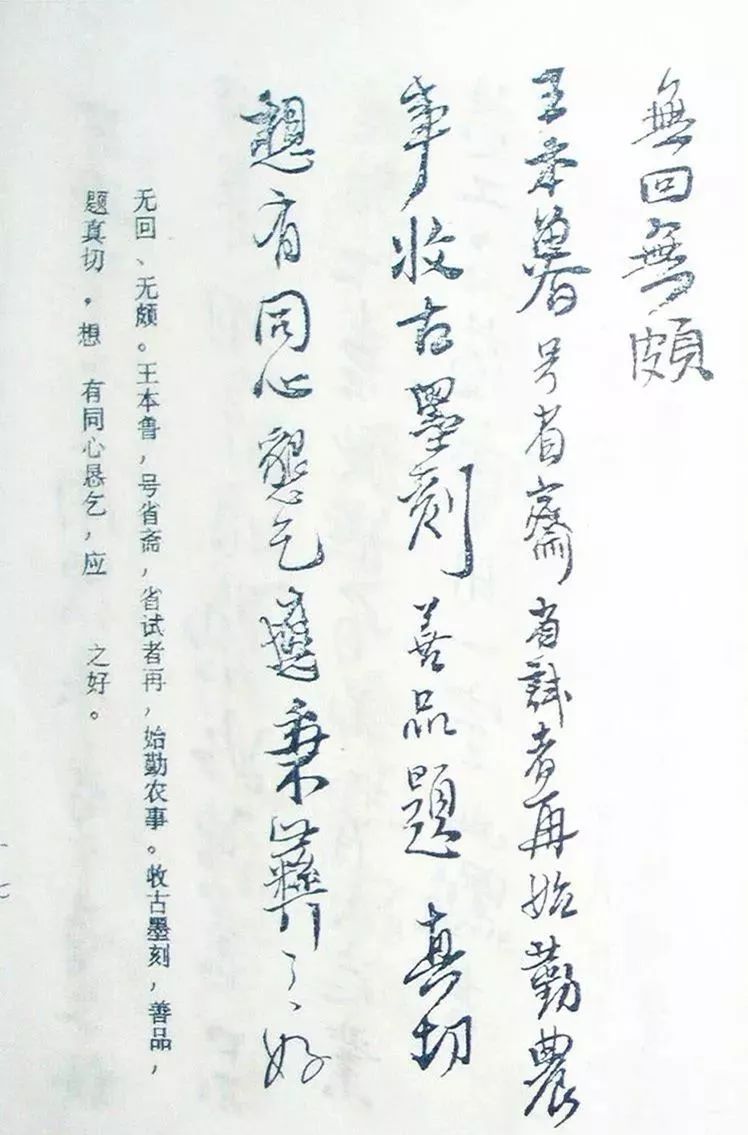 無回無頗
王本魯号省齋省試者再始勤農
事收古墨刻善品題真切
想有同心懇乞應秉彝之好
无回、无颇。王本鲁,号省斋,省试者再,始勤农事。收古墨刻,善品,
题真切,想 有同心恳乞,应 之好。
十七